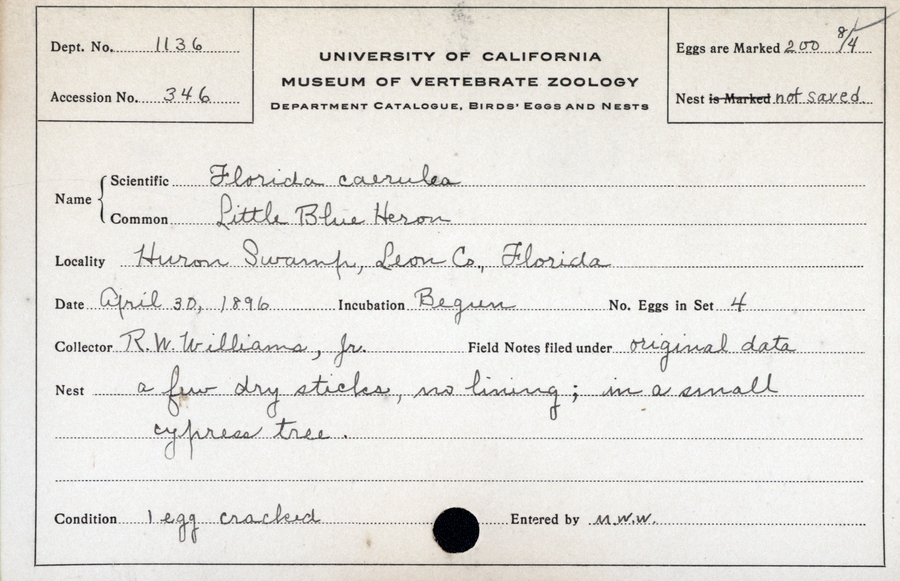 Dept. No. 1136
Accession No. 346
UNIVERSITY OF CALIFORNIA
MUSEUM OF VERTEBRATE ZOOLOGY
DEPARTMENT CATALOGUE, BIRDS' EGGS AND NESTS
Eggs are Marked 200 8/4
Nest is Marked not saved.
Name
Scientific Florida caerulea
Common Little Blue Heron
Locality Huron Swamp, Leon Co., Florida
Date April 30, 1896 Incubation Begun No. Eggs in Set 4
Collector R.W. Williams, Jr. Field Notes filed under original data
Nest a few dry sticks, no lining; in a small
cypress tree.
Condition 1 egg cracked Entered by M.W.W.